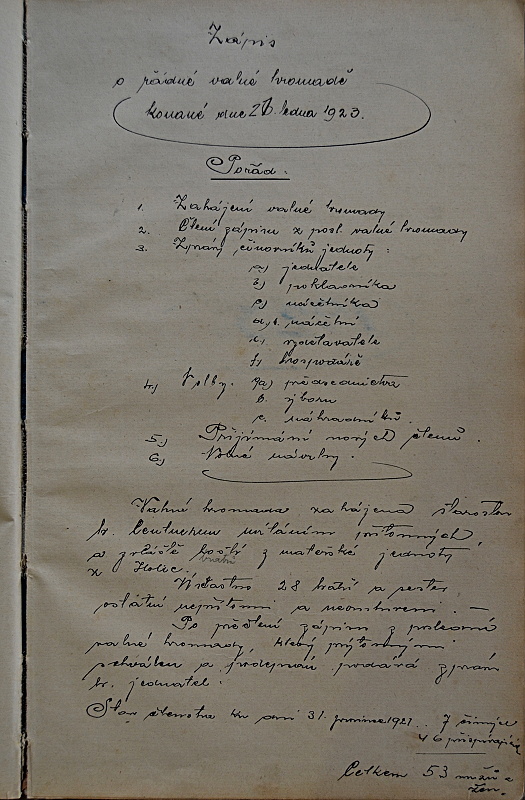 Zápis
o řádné valné hromadě
konané dne 28. ledna 1923.
Pořad:
1. Zahájení valné hromady
2. Čtení zápisu z posl. valné hromady
3. Zprávy činovníků jednoty:
a) jednatele
b) pokladníka
c) náčelníka
d) náčelní
e) vzdělavatele
f) hospodáře
4.) Volby. a) předsednictva
b. výboru
c. náhradníků.
5.) Přijímání nových členů.
6.) Volné návrhy.
Valná hromada zahájena starostou
br. uvítáním přítomných
a zvláště hostí z mateřské jednoty
bratří
z Holic.
28 bratří a sester
ostatní nepřítomni a neomluveni. —
Po přečtení zápisu z poslední
valné hromady, který přítomnými
schválen a podává zprávu
br. jednatel.
Stav členstva ku dni 31. prosince 1921 .. 7 činných
46 přispívajících
Celkem 53 mužů a
žen.